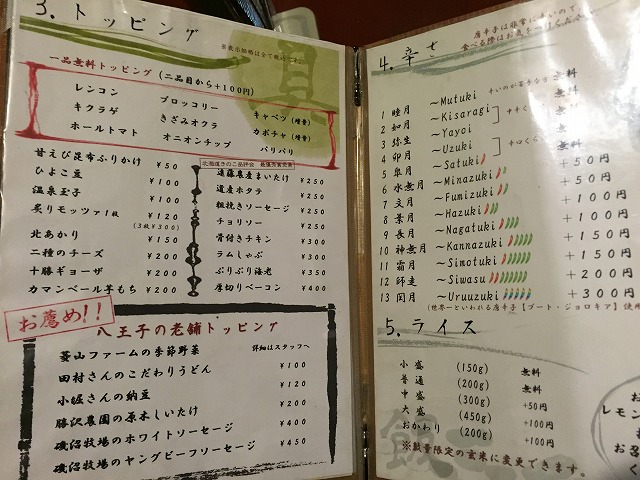 3. トッピング
※表示価格は全て税込です。
具
一品無料トッピング (二品目から+100円)
レンコン ブロッコリー キャベツ (増量)
キクラゲ きざみオクラ カボチャ (増量)
ホールトマト オニオンチップ パリパリ
甘えび昆布ふりかけ ¥50
ひよこ豆 ¥100
温泉玉子 ¥100
炙りモッツァ1枚 ¥120
(3枚¥300)
北あかり ¥150
二種のチーズ ¥200
十勝ギョーザ ¥200
カマンベール芋もち ¥200
北海道きのこ品評会 最優秀賞受賞
遠藤農産まいたけ ¥250
道産ホタテ ¥250
粗挽きソーセージ ¥250
チョリソー ¥250
骨付きチキン ¥300
ラムしゃぶ ¥300
ぷりぷり海老 ¥350
厚切りベーコン ¥400
お薦め!!
八王子の老舗トッピング
詳細はスタッフへ
菱山ファームの季節野菜 ¥100
田村さんのこだわりうどん ¥120
小堀さんの納豆 ¥200
勝沢農園の原木しいたけ ¥200
磯沼牧場のホワイトソーセージ ¥400
磯沼牧場のヤングビーフソーセージ ¥450
4. 辛さ
唐辛子は非常に
食べる際はお気をつけください
辛いのが苦手な
1 睦月 〜Mutuki 無料
2 如月 〜Kisaragi 無料
3 弥生 〜Yayoi 無料
4 卯月 〜Uzuki 無料
5 皐月 〜Satuki +50円
6 水無月 〜Minazuki +50円
7 文月 〜Fumizuki +100円
8 葉月 〜Hazuki +100円
9 長月 〜Nagatuki +100円
10 神無月 〜Kannazuki +150円
11 霜月 〜Simotuki +150円
12 師走 〜Siwasu +200円
13 閏月 〜Uruuzuki +300円
(世界一といわれる唐辛子【ブート・ジョロキア】使用
5. ライス
小盛 (150g) 無料
普通 (200g) 無料
中盛 (300g) +50円
大盛 (450g) +100円
おかわり (200g) +100円
※数量限定の玄米に変更できます。
飯
レモン